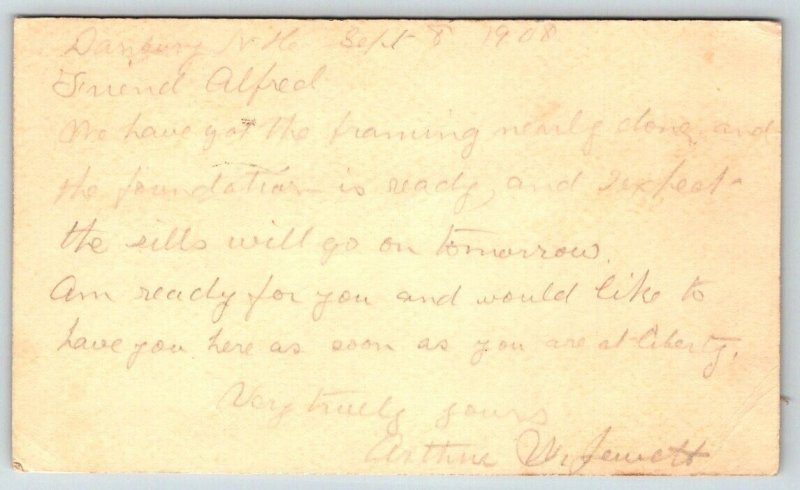 Danbury N He Sept 8 1908
Friend Alfred
We have got the framing nearly done, and
the foundation is ready, and I expect
the sills will go on tomorrow.
Am ready for you and would like to
have you here as soon as you are at liberty.
Very truly yours
Arthur W. Jewett